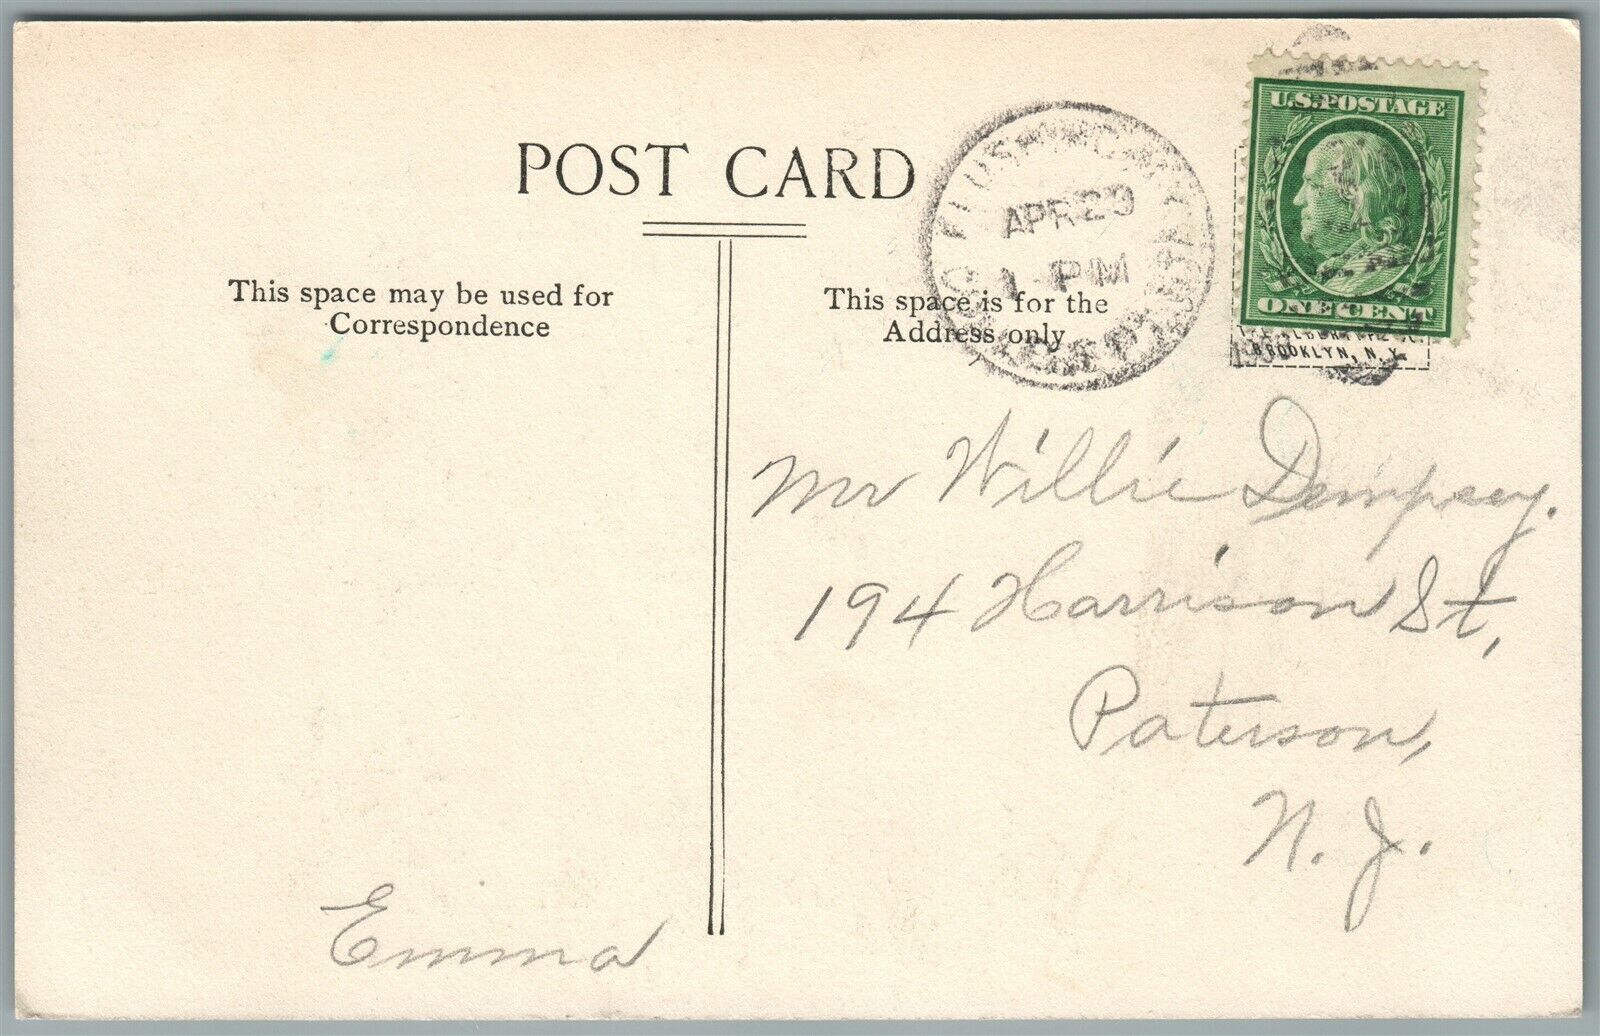 POST CARD
This space may be used for
Correspondence
This space is for the
Address only
FLUSHING
APR 29
1 - PM
U.S.POSTAGE
ONE CENT
BROOKLYN, N.Y.
Mr Willie Dempsey.
194 Harrison St,
Paterson,
N. J.
Emma